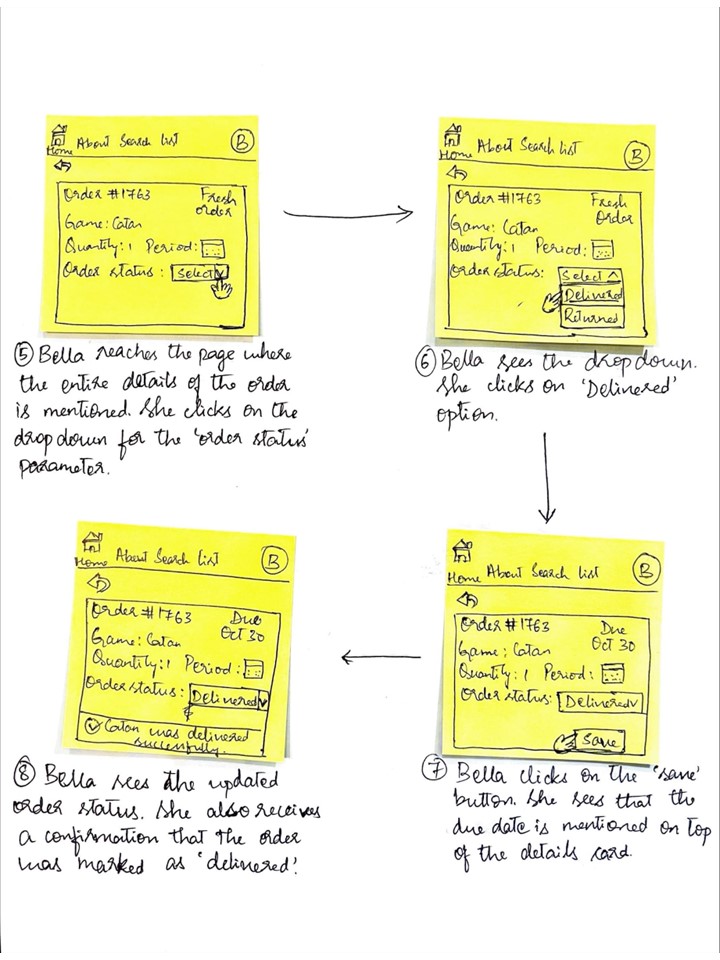 Home About Search list B
Order #1763 Fresh
order
Game: Catan
Quantity: 1 Period:
Order status: Select
⑤ Bella reaches the page where
the entire details of the order
is mentioned. She clicks on the
drop down for the 'order status'
parameter.
Home About Search list B
Order #1763 Fresh
Order
Game: Catan
Quantity: 1 Period:
Order status: Select
Delivered
Returned
⑥ Bella sees the drop down.
She clicks on 'Delivered'
option.
Home About Search list B
Order #1763 Due
Oct 30
Game: Catan
Quantity: 1 Period:
Order status: Delivered
Save
⑦ Bella clicks on the 'save'
button. She sees that the
due date is mentioned on top
of the details card.
Home About Search list B
Order #1763 Due
Oct 30
Game: Catan
Quantity: 1 Period:
Order status: Delivered
Catan was delivered
successfully.
⑧ Bella sees the updated
order status. She also receives
a confirmation that the order
was marked as 'delivered'.